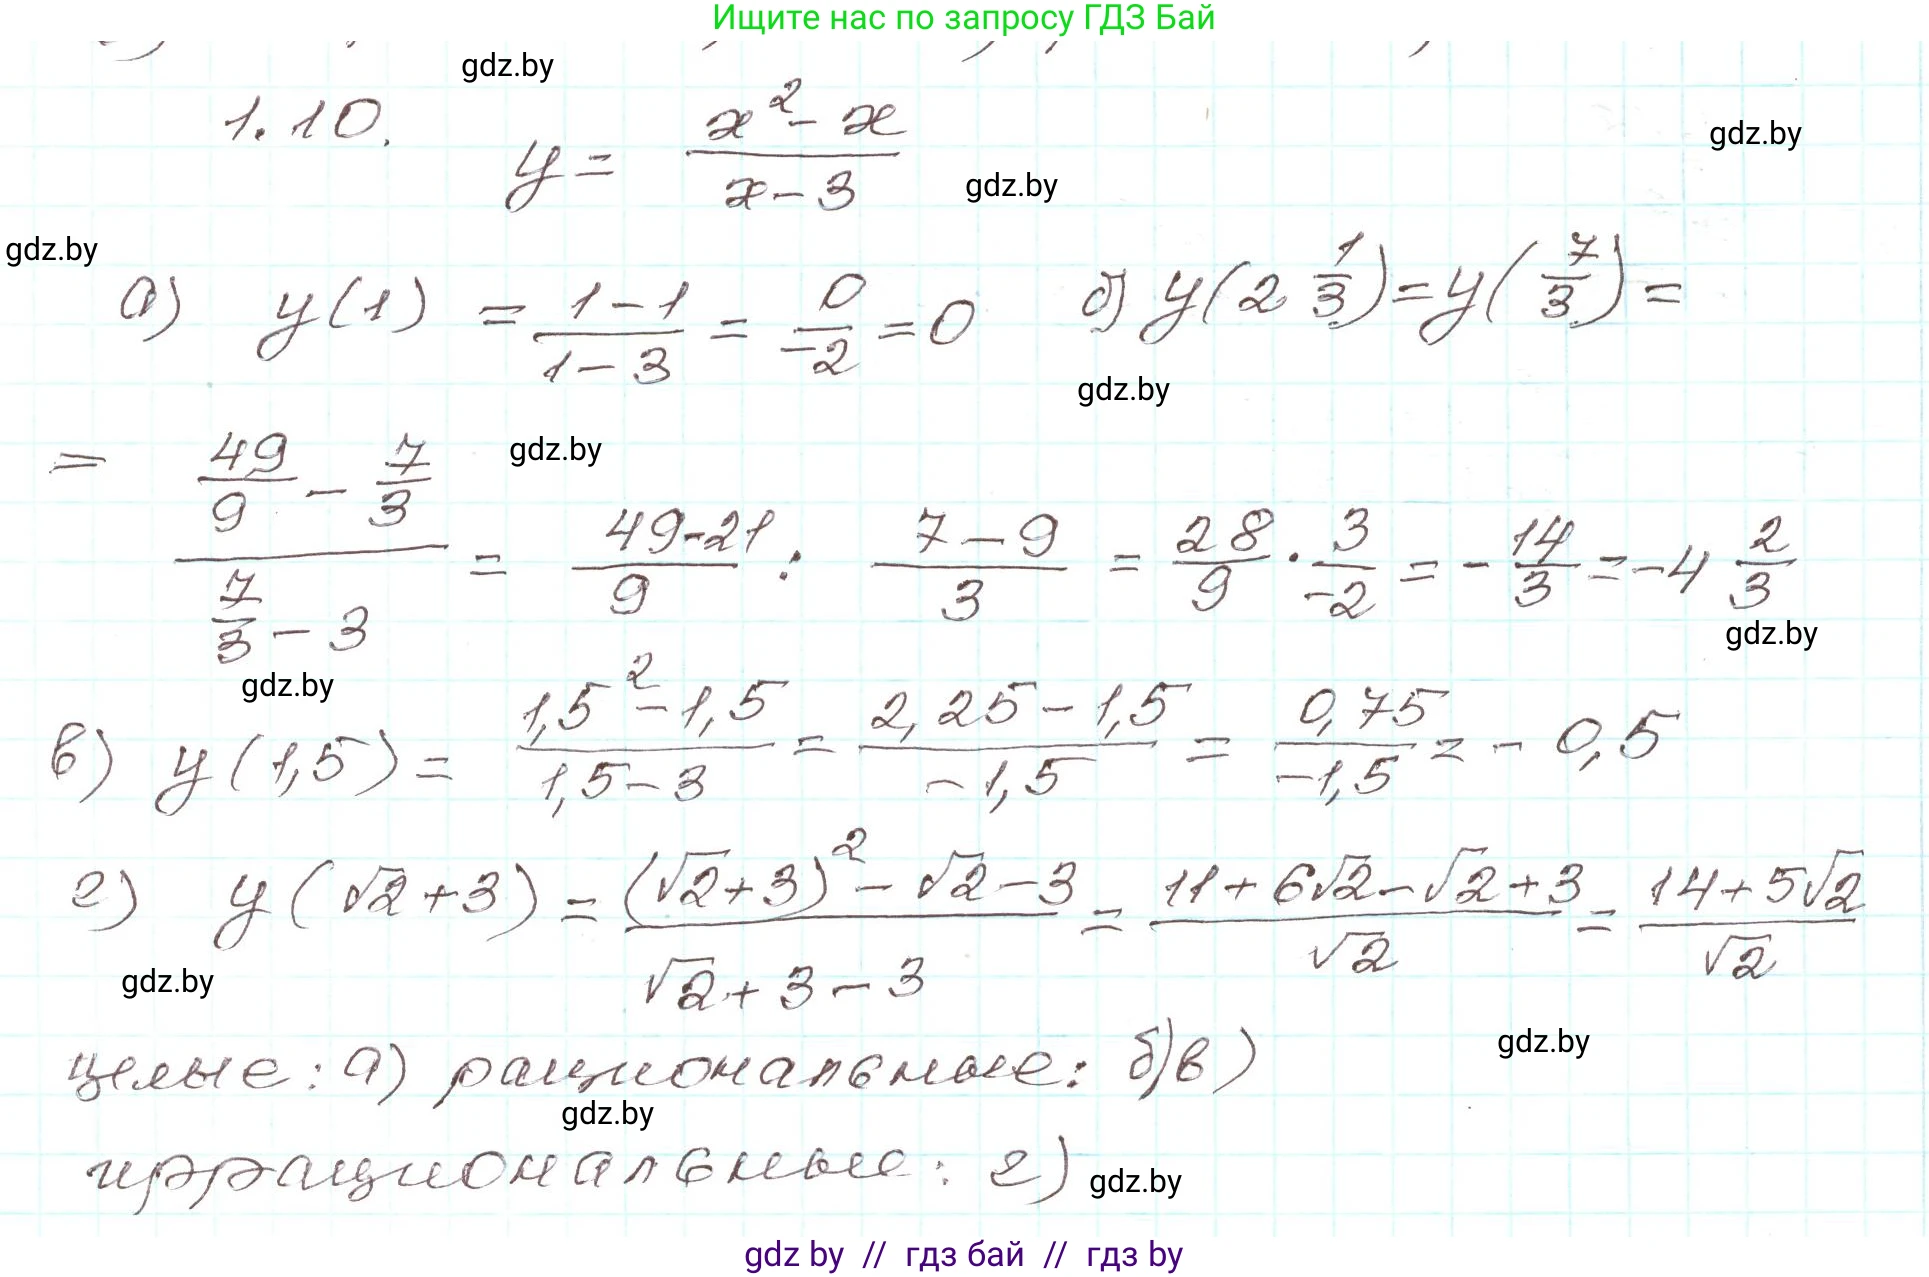 Ищите нас по запросу ГДЗ Бай
gdz.by
1.10. y = (x² - x)/(x - 3)
gdz.by
gdz.by
gdz.by
а) y(1) = (1-1)/(1-3) = 0/(-2) = 0 б) y(2 1/3) = y(7/3) =
gdz.by
= (49/9 - 7/3)/(7/3 - 3) = (49-21)/9 : (7-9)/3 = 28/9 · 3/(-2) = - 14/3 = -4 2/3
gdz.by
gdz.by
gdz.by
в) y(1,5) = (1,5² - 1,5)/(1,5 - 3) = (2,25 - 1,5)/(-1,5) = 0,75/(-1,5) = - 0,5
г) y(√2+3) = ((√2+3)² - √2 - 3)/(√2 + 3 - 3) = (11+6√2-√2+3)/√2 = (14+5√2)/√2
gdz.by
gdz.by
целые: а) рациональные: б)в)
gdz.by
иррациональные: г)
gdz.by
gdz by // гдз бай // гдз by